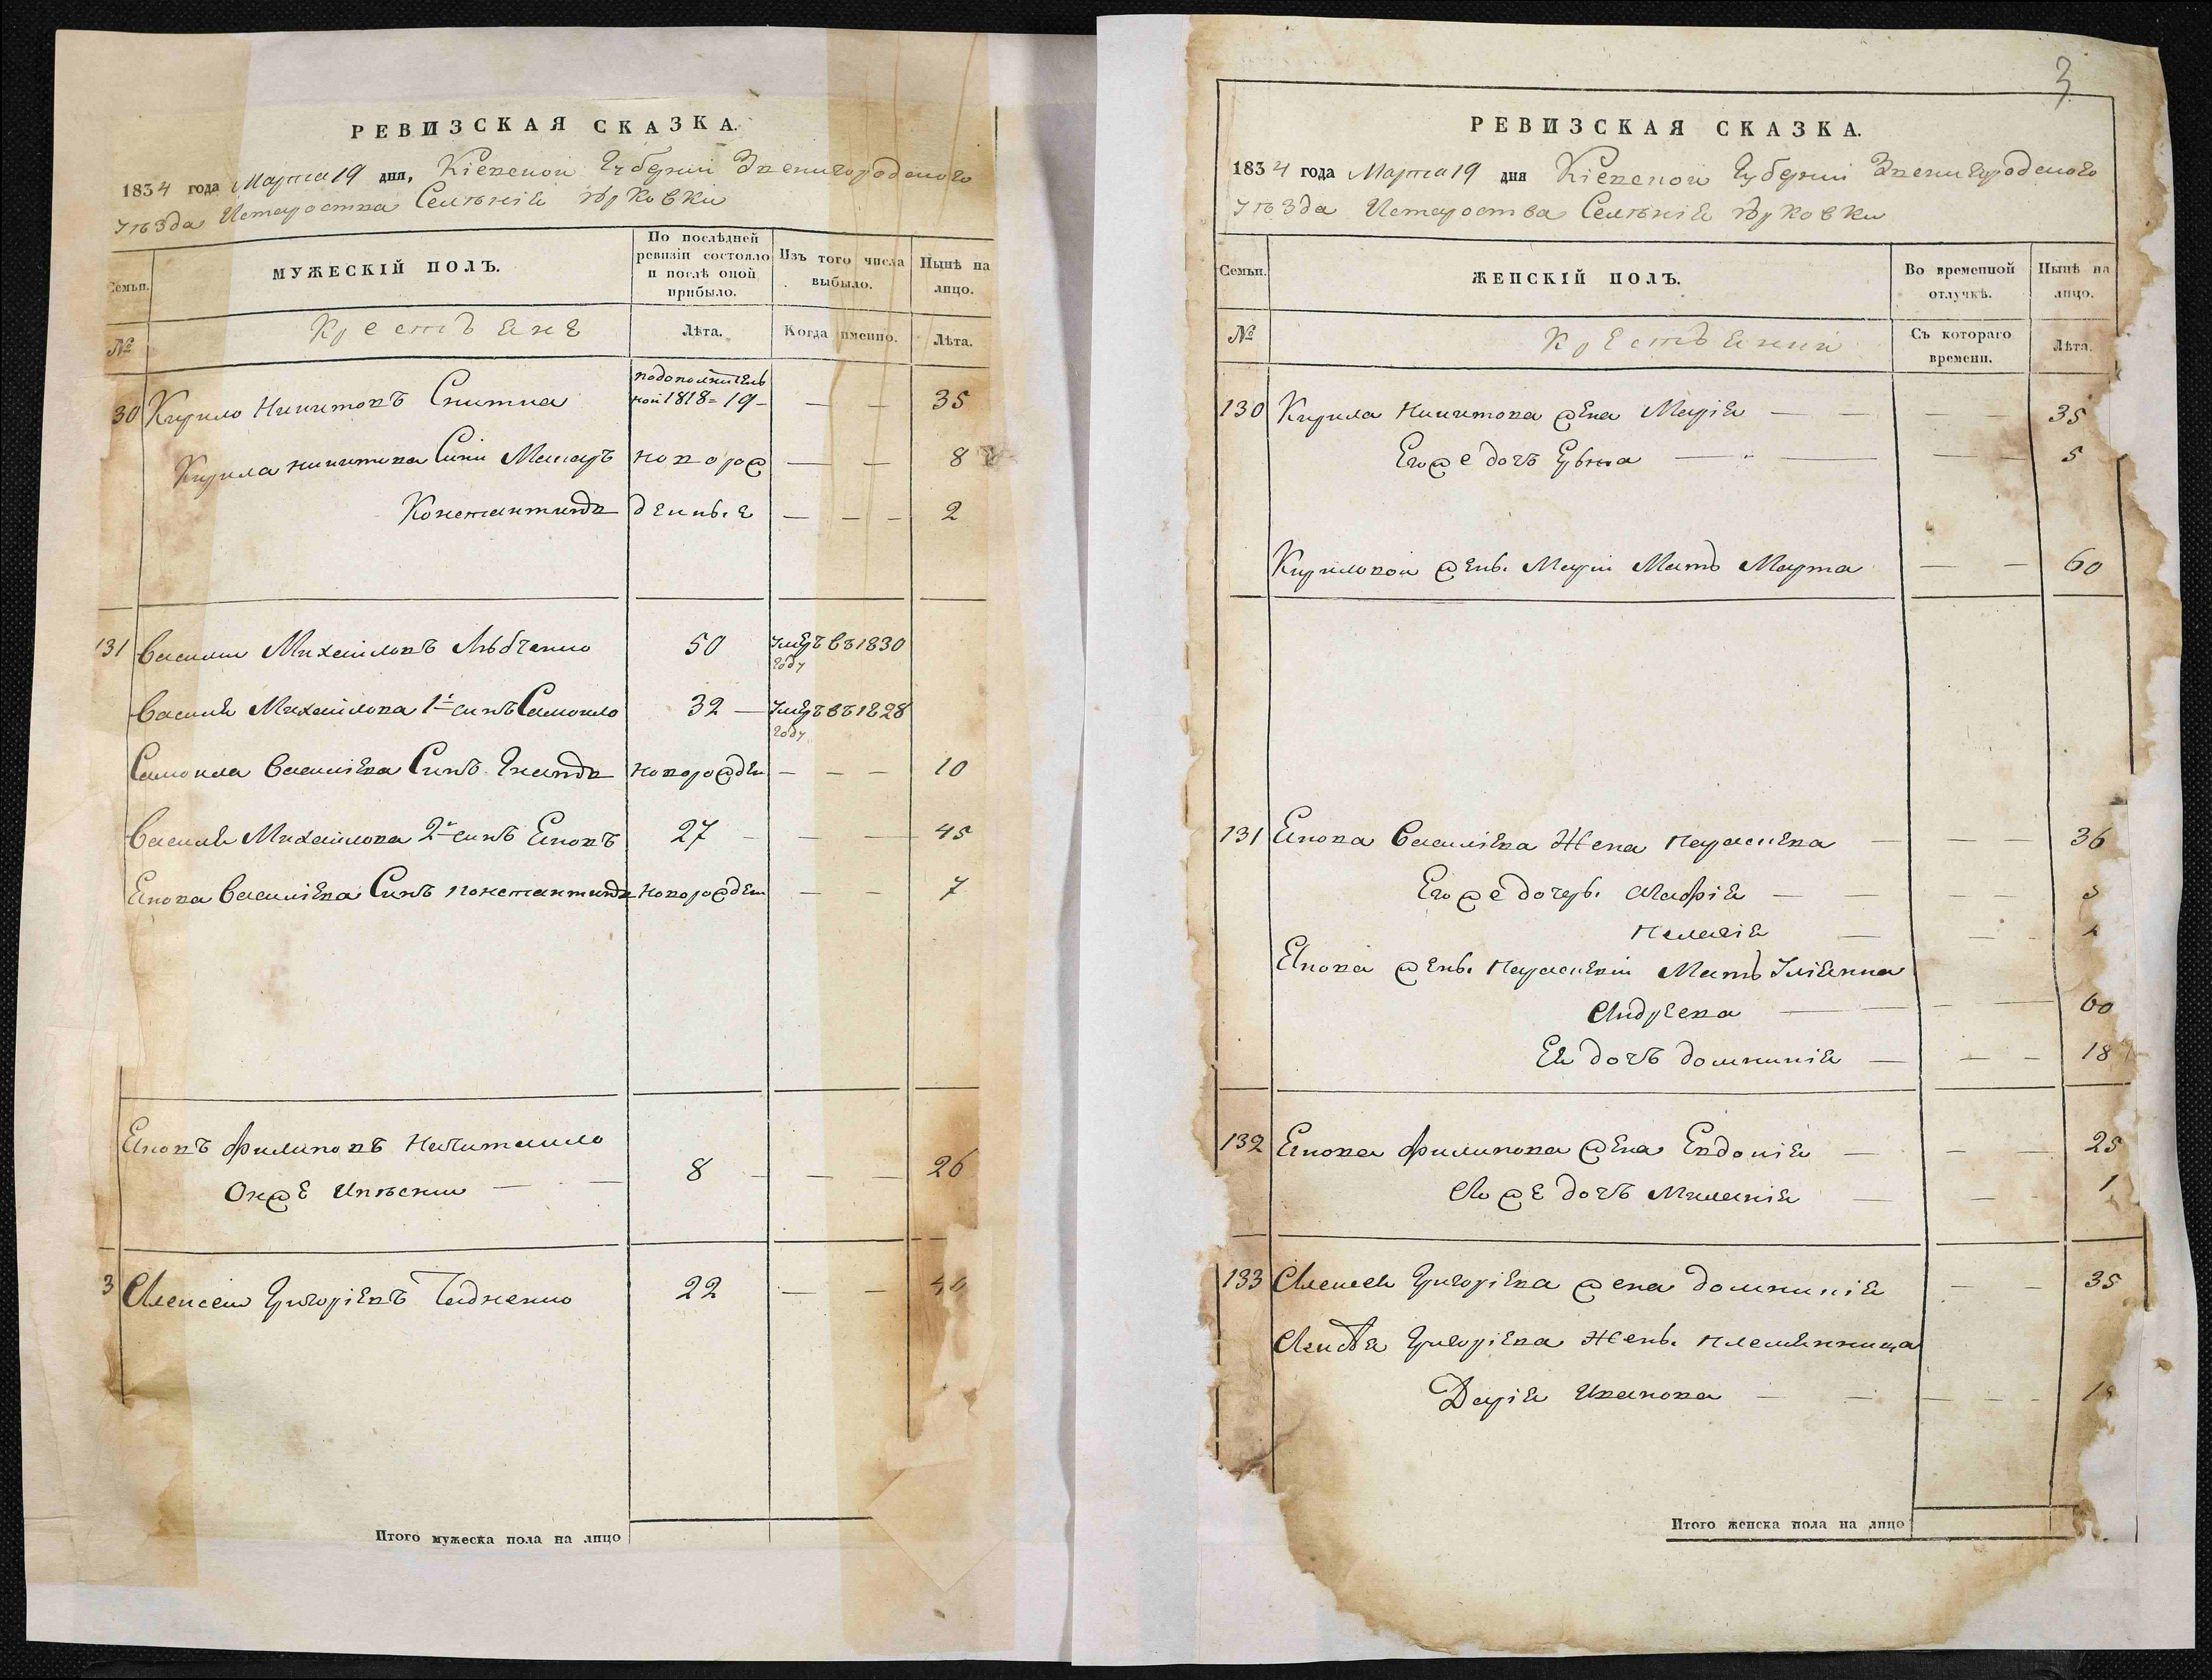 РЕВИЗСКАЯ СКАЗКА.
1834 года Марта 19 дня, Кіевской Губерніи Звенигородского
уѣзда Истароства Селѣнія Юрковки
Семьи.
МУЖЕСКІЙ ПОЛЪ.
По послѣдней ревизіи состояло и послѣ оной прибыло.
Изъ того числа выбыло.
Нынѣ на лицо.
№
Крестьяне
Лѣта.
Когда именно.
Лѣта.
30 Кирило Никитовъ подополнитель ной 1818 = 19 — — — 35
Кирила никитова Сини Макаръ новорож — — 8
Константинъ денные — — — 2
131 Василии Михаиловъ 50 умеръ въ 1830 году
Василя Михаилова 1й синъ Самоило 32 — умеръ въ 1828 году
Самоила Василіева Синъ новорожден — — — 10
Василя Михаилова 2й синъ Яковъ 27 — — — 45
Якова Василіева Синъ константинъ новорожден — — 7
Яковъ Филиповъ
Онже 8 — — — 26
3 Алексеи Григоріевъ 22 — —
Итого мужеска пола на лицо
3
РЕВИЗСКАЯ СКАЗКА.
1834 года Марта 19 дня Кіевской Губерніи Звенигородского
уѣзда Истароства Селѣнія Юрковки
Семьи.
ЖЕНСКІЙ ПОЛЪ.
Во временной отлучкѣ.
Нынѣ на лицо.
№
Крестьянки
Съ котораго времени.
Лѣта.
130 Кирила Никитова жена Марія — — — — 35
Егоже дочъ — — — — 5
Кириловой жены Маріи Мать Марта — — 60
131 Якова Василіева Жена параскева — — — — 36
Егоже дочеры — — — —
пелагія — — —
Якова жены параскевіи Мать Уліянна
Андреева — — — — 60
Ея дочъ домникія — — — — 18
132 Якова Филипова жена Евдокія — — — 25
Егоже дочъ Миланія — — — 1
133 Алексея Григоріева жена домникія — — 35
Григоріева Жены племянница
Дарія Иванова — — — — —
Итого женска пола на лицо